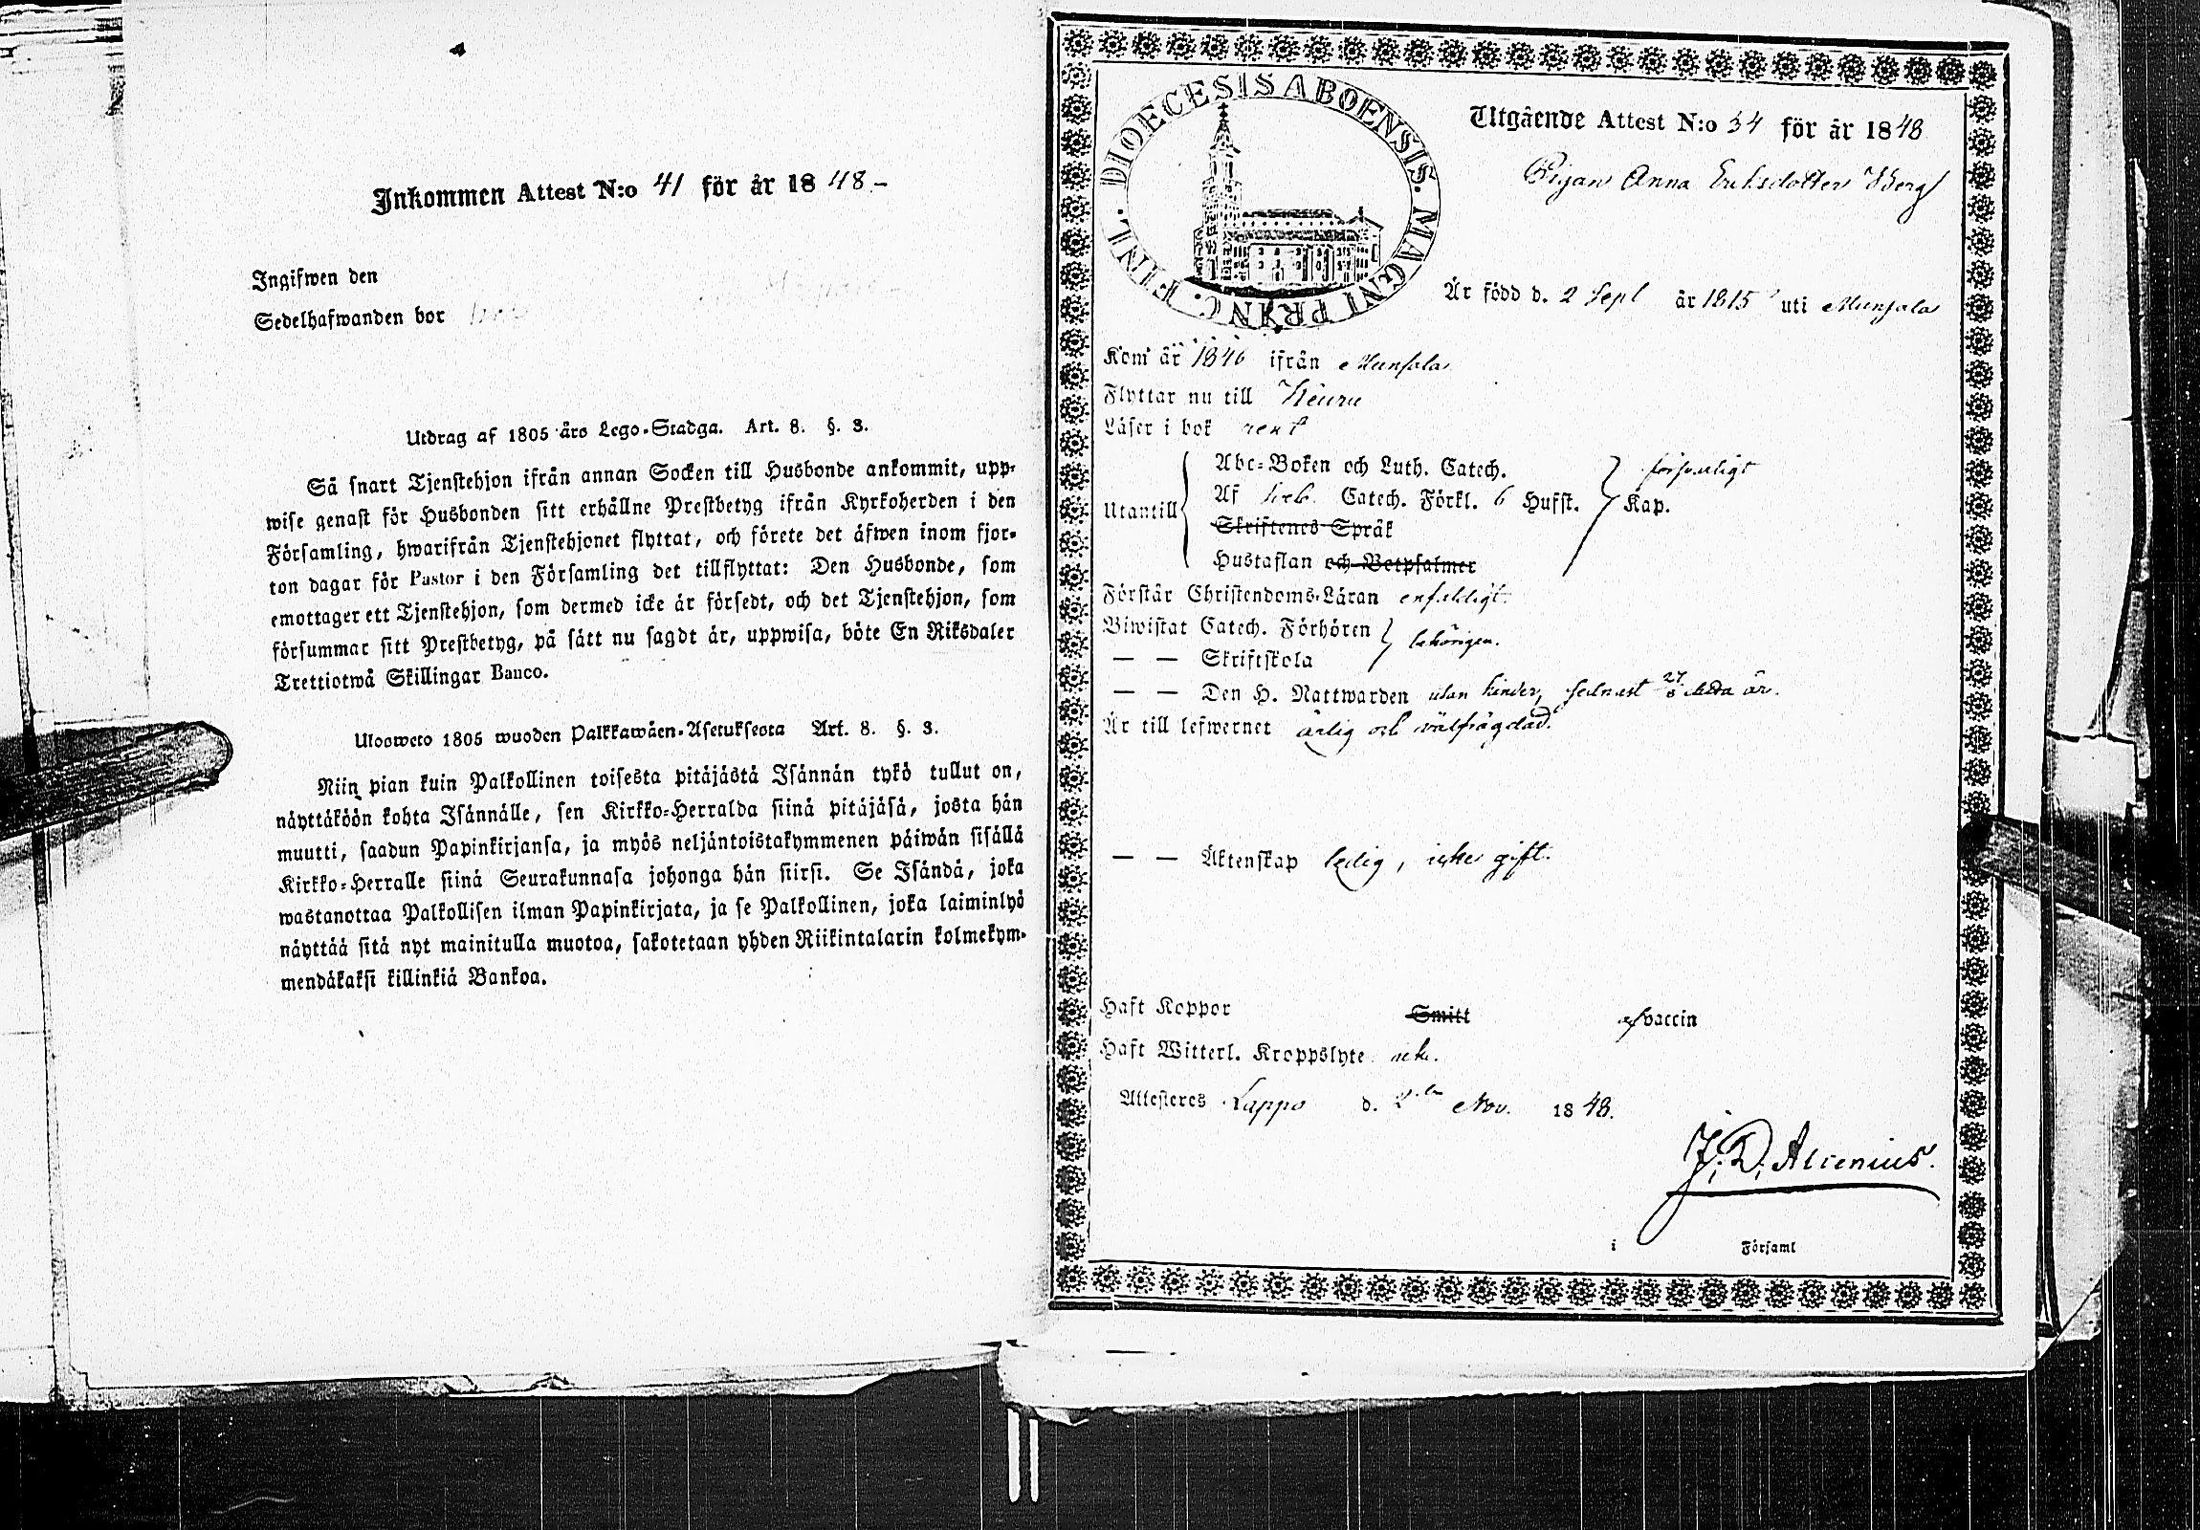 Inkommen Attest N:o 41 för år 1848-
Ingifwen den
Sedelhafwanden bor
Utdrag af 1805 års Lego-Stadga. Art. 8. §. 3.
Så snart Tjenstehjon ifrån annan Socken till Husbonde ankommit, upp-
wise genast för Husbonden sitt erhållne Prestbetyg ifrån Kyrkoherden i den
Församling, hwarifrån Tjenstehjonet flyttat, och förete det äfwen inom fjor-
ton dagar för Pastor i den Församling det tillflyttat: Den Husbonde, som
emottager ett Tjenstehjon, som dermed icke är försedt, och det Tjenstehjon, som
försummar sitt Prestbetyg, på sätt nu sagdt är, uppwisa, böte En Riksdaler
Trettiotwå Skillingar Banco.
Ulosweto 1805 wuoden Palkkawäen-Asetuksesta Art. 8. §. 3.
Niin pian kuin Palkollinen toisesta pitäjästä Isännän tykö tullut on,
näyttäköön kohta Isännälle, sen Kirkko-Herralda siinä pitäjäsä, josta hän
muutti, saadun Papinkirjansa, ja myös neljäntoistakymmenen päiwän sisällä
Kirkko-Herralle siinä Seurakunnasa johonga hän siirsi. Se Isändä, joka
wastanottaa Palkollisen ilman Papinkirjata, ja se Palkollinen, joka laiminlyö
näyttää sitä nyt mainitulla muotoa, sakotetaan yhden Riikintalarin kolmekym-
mendäkaksi killinkiä Bankoa.
DIOECESIS ABOENSIS. MAGNI PRINC. FINL.
Utgående Attest N:o 34 för år 1848
Pigan Anna Eriksdotter Berg
Är född d. 2 Sept år 1815 uti Munsala
Kom år 1846 ifrån Munsala
Flyttar nu till Keuru
Läser i bok rent
Utantill
Abc-Boken och Luth. Catech. försvarligt
Af Catech. Förkl. 6 Hufst. Kap.
Skriftenes Språk
Hustaflan och Botpsalmer
Förstår Christendoms-Läran enfaldigt.
Biwistat Catech. Förhören behörigen.
— — Skriftskola
— — Den H. Nattwarden utan hinder, sednast 27/8 detta år.
Är till lefwernet ärlig och välfrägdad.
— — Äktenskap ledig, icke gift.
Haft Koppor Smitt af vaccin
Haft Witterl. Kroppslyte icke.
Attesteres Lappo d. 2 Nov. 1848.
J. D. Alcenius.
i Församl